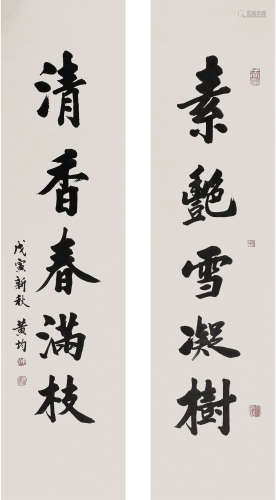 素艷雪凝樹
清香春滿枝
戊寅新秋 黄均